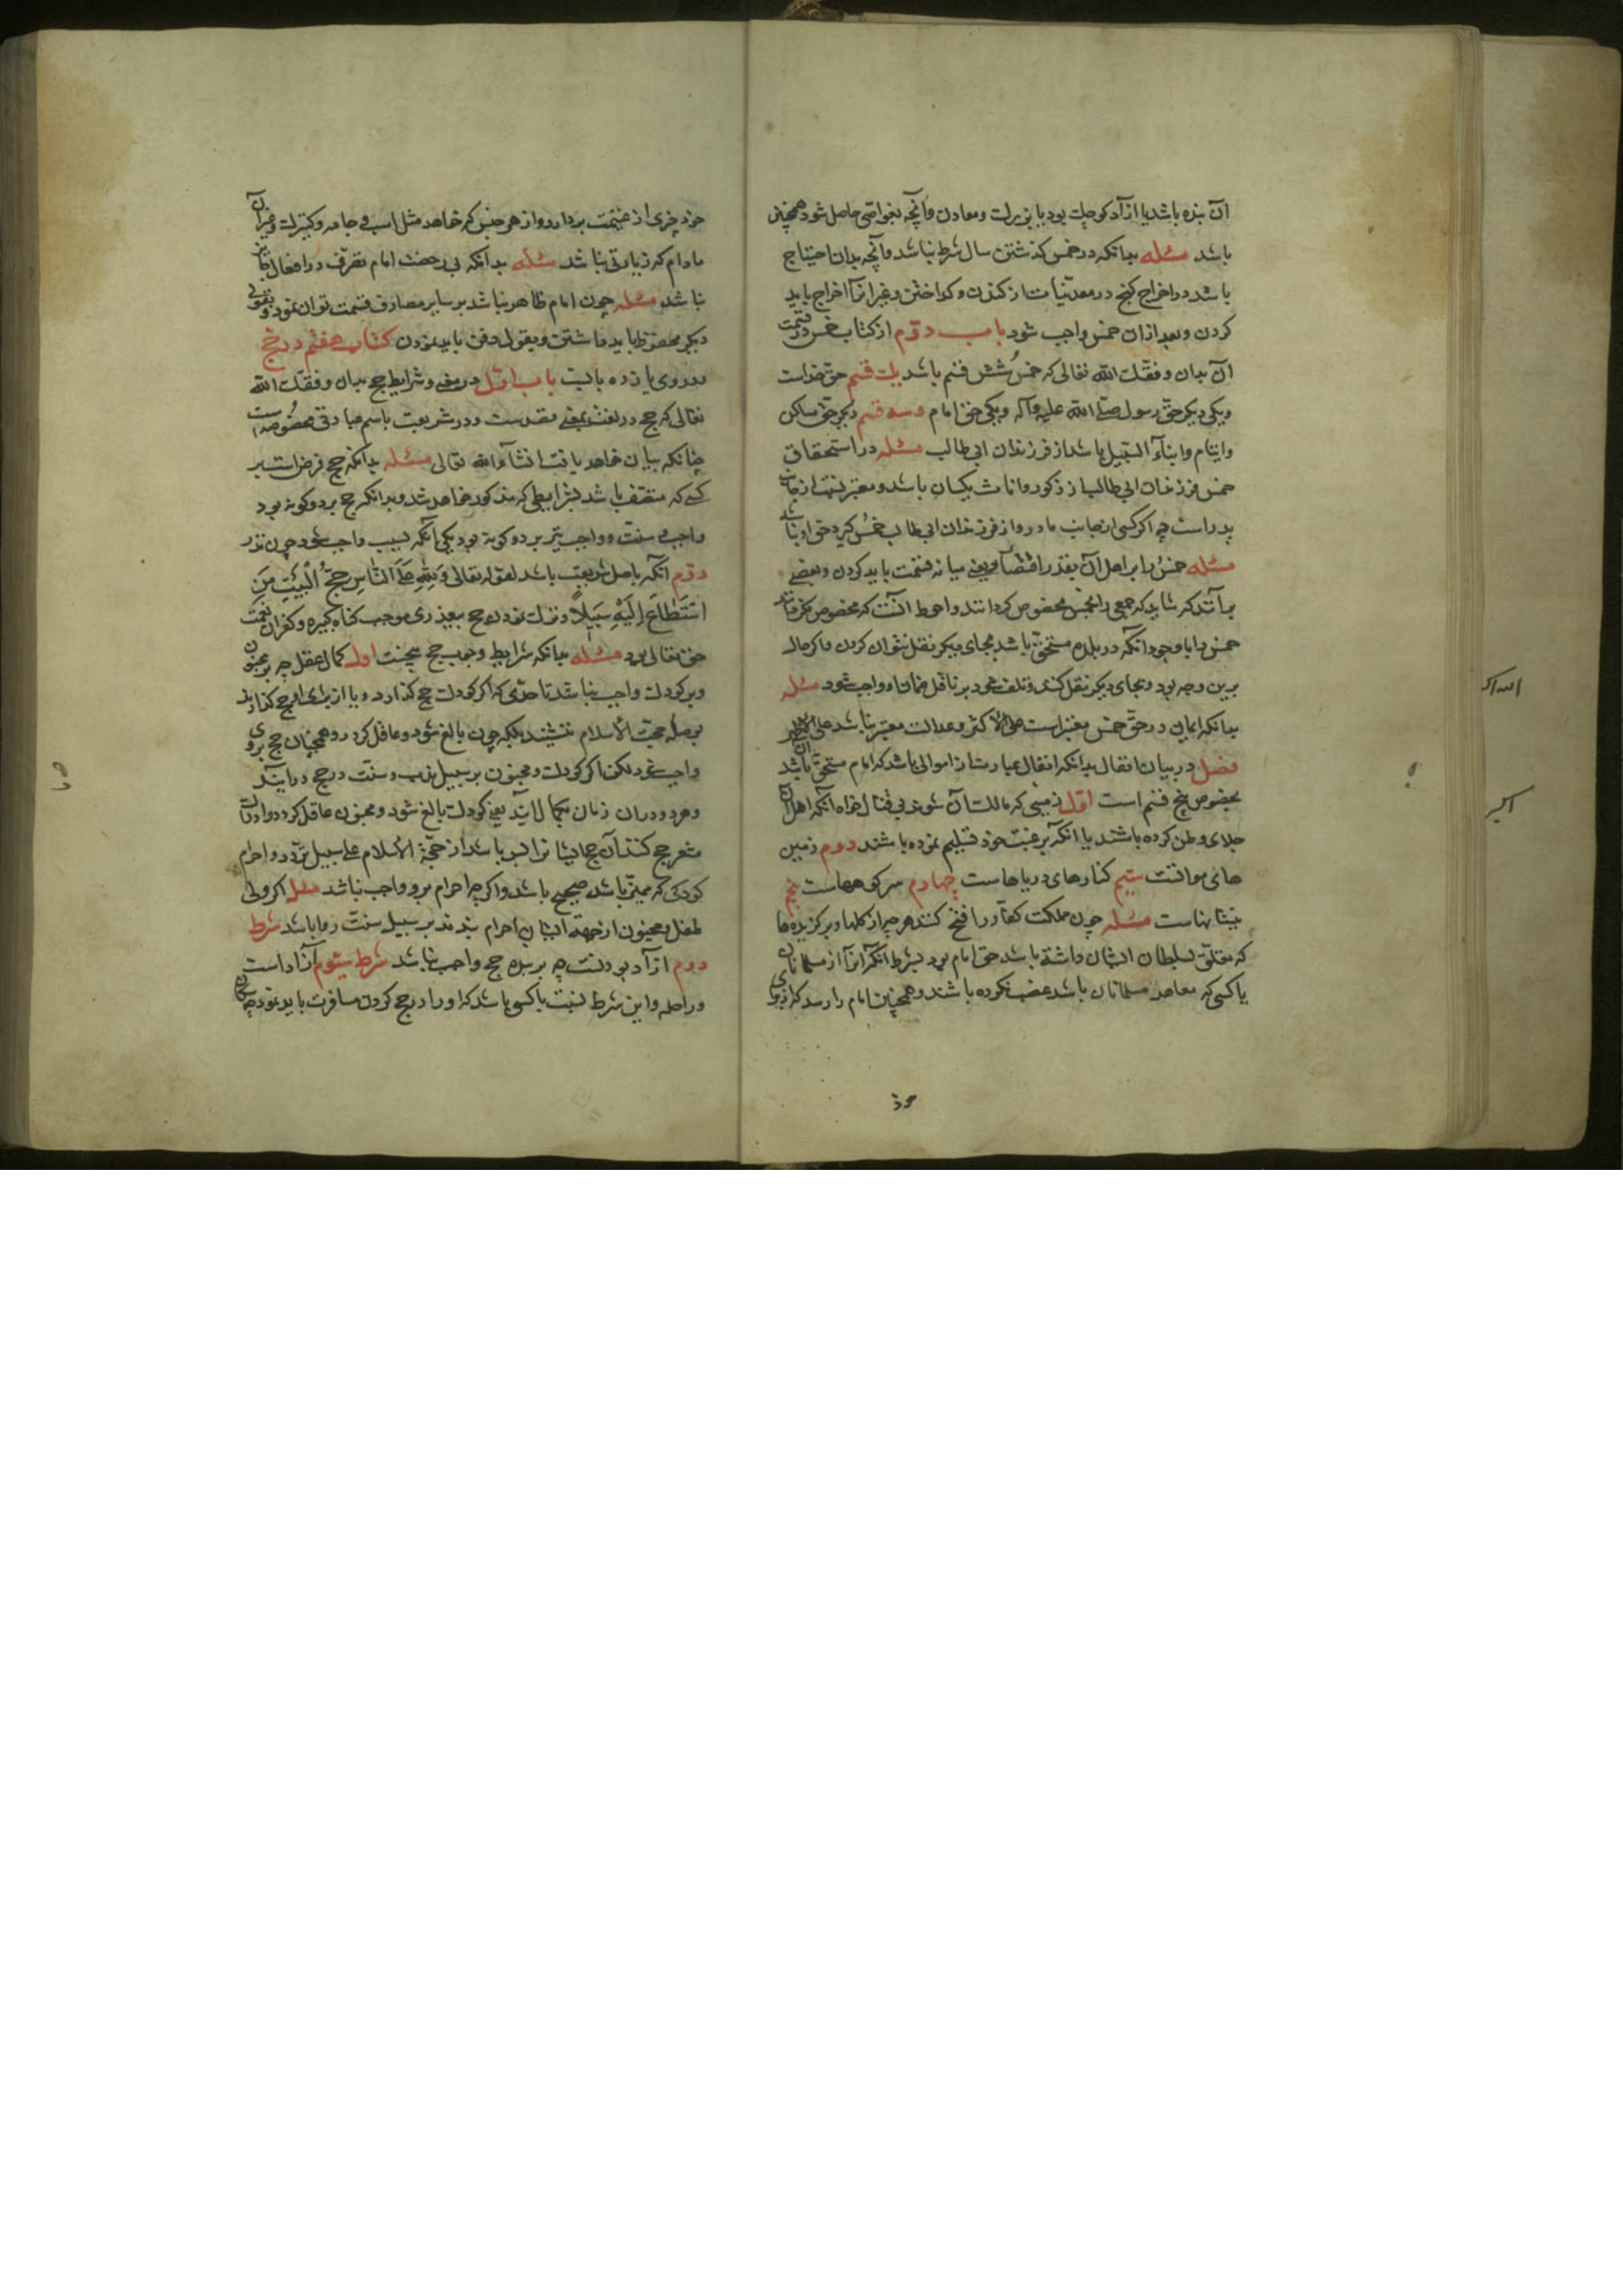 آن بنده باشد یا ازآد کوچک بود یا بزرگ و معادن وآنچه بغواصّی حاصل شود همچنین
باشد مسئله بدانکه در خمس کذشتن سال شرط نباشد وآنچه بدان احتیاج
باشد در اخراج کنج در معدنیات از کندن و کداختن و غیر آن اخراج باید
کردن و بعد ازان خمس واجب شود باب دوّم از کتاب خمس در قسمت
آن بدان وفقک الله تعالی که خمس شش قسم باشد یک قسم حق خداست
ویکی دیکر حق رسول صلی الله علیه وآله ویکی حق امام وسه قسم دیکر حق مساکین
وایتام وابناء السّبیل باشد از فرزندان ابی طالب مسئله در استحقاق
خمس فرزندان ابی طالب از ذکور واناث یکسان باشد ومعتبر نسبت از جانب
پدر است چه اکر کسی از جانب مادر واز فرزندان ابی طالب خمس کیرد حق او نباشد
مسئله خمس را بر اهل آن بقدر اقتضا یعنی میانه قسمت باید کردن وبعضی
برآنند که شاید که جمعی را بخمس مخصوص کردانند واحوط آنست که مخصوص نکردانند
خمس را با وجود آنکه در بلده مستحق باشد بجای دیکر نقل نتوان کردن واکر حال
برین وجه بود وبجای دیکر نقل کند وتلف شود بر ناقل ضمان او واجب شود مسئله
بدانکه ایمان در حقّ خمس معتبر است علی الاکثر وعدالت معتبر نباشد علی الاظهر
فصل در بیان انفال بدانکه انفال عبارت از اموالی باشد که امام مستحق آن باشد
بخصوص پنج قسم است اوّل زمینی که مالک آن شوند بی قتال خواه آنکه اهل آن
جلای وطن کرده باشند یا آنکه برغبت خود تسلیم نموده باشند دوم زمین
های مواتست سیّم کنارهای دریاهاست چهارم سر کوههاست پنجم
بیشه‌هاست مسئله چون مملکت کفّار را فتح کنند هرچه از کلها وبرکزیده‌ها
که متعلق بسلطان ایشان داشته باشد حق امام بود بشرط آنکه آنرا از مسلمانان
یا کسی که معاهد مسلمانان باشد غصب نکرده باشند وهمچنین امام را رسد که از برای
خود
الله اکبر
اکبر
خود چیزی از غنیمت بردارد واز هر جنس که خواهد مثل اسب و جامه وکنیزک وغیر آن
مادام که زیادتی نباشد مسئله بدانکه بی رخصت امام تصرّف در انفال جایز
نباشد مسئله چون امام ظاهر نباشد بر سایر مصارف قسمت توان نمود وبقولی
دیکر محفوظ باید داشتن وبقولی دفن باید نمودن کتاب هفتم در حج
ودر وی یازده بابست باب اوّل در معنی وشرایط حج بدان وفقک الله
تعالی که حج در لغت بمعنی قصدست ودر شریعت باسم عبادتی مخصوصست
چنانکه بیان خواهد یافت انشاء الله تعالی مسئله بدانکه حج فرض است بر
کسی که متصف باشد بشرایطی که مذکور خواهد شد وبدانکه حج بر دو کونه بود
واجب و سنت وواجب نیز بر دو کونه بود یکی آنکه بسبب واجب شود چون نذر
دوّم آنکه باصل شریعت باشد لقوله تعالی وَلِلّٰهِ عَلَی النَّاسِ حِجُّ الْبَیْتِ مَنِ
اسْتَطَاعَ إِلَیْهِ سَبِیلًا وترک نمودن حج بعذری موجب کناه کبیره وکفران نعمت
حق تعالی بود مسئله بدانکه شرایط وجوب حج پنجست اوّل کمال عقل چه بر مجنون
وبر کودک واجب نباشد تا حدّی که اکر کودک حج کذارد ویا از برای او حج کذارند
بر جای حجّت الاسلام ننشیند بلکه چون بالغ شود وعاقل کردد همچنان حج بروی
واجب شود لکن اکر کودک ومجنون بر سبیل ندب وسنّت در حج درآیند
وهر دو در آن زمان بکمال آیند یعنی کودک بالغ شود ومجنون عاقل کردد وادراک
مشعر حج کنند آن حج ایشانرا بس باشد از حجّة الاسلام علی سبیل تردّد واحرام
کودکی که ممیّز باشد صحیح باشد واکر چه احرام برو واجب نباشد مسئله اکر ولی
طفل ومجنون از جهة ایشان احرام بندند بر سبیل سنّت روا باشد شرط
دوم ازآد بودنست چه بر بنده حج واجب نباشد شرط سیّوم آزاد است
وراحله واین شرط نسبت با کسی باشد که او را در حج کردن مسافرت باید نمود